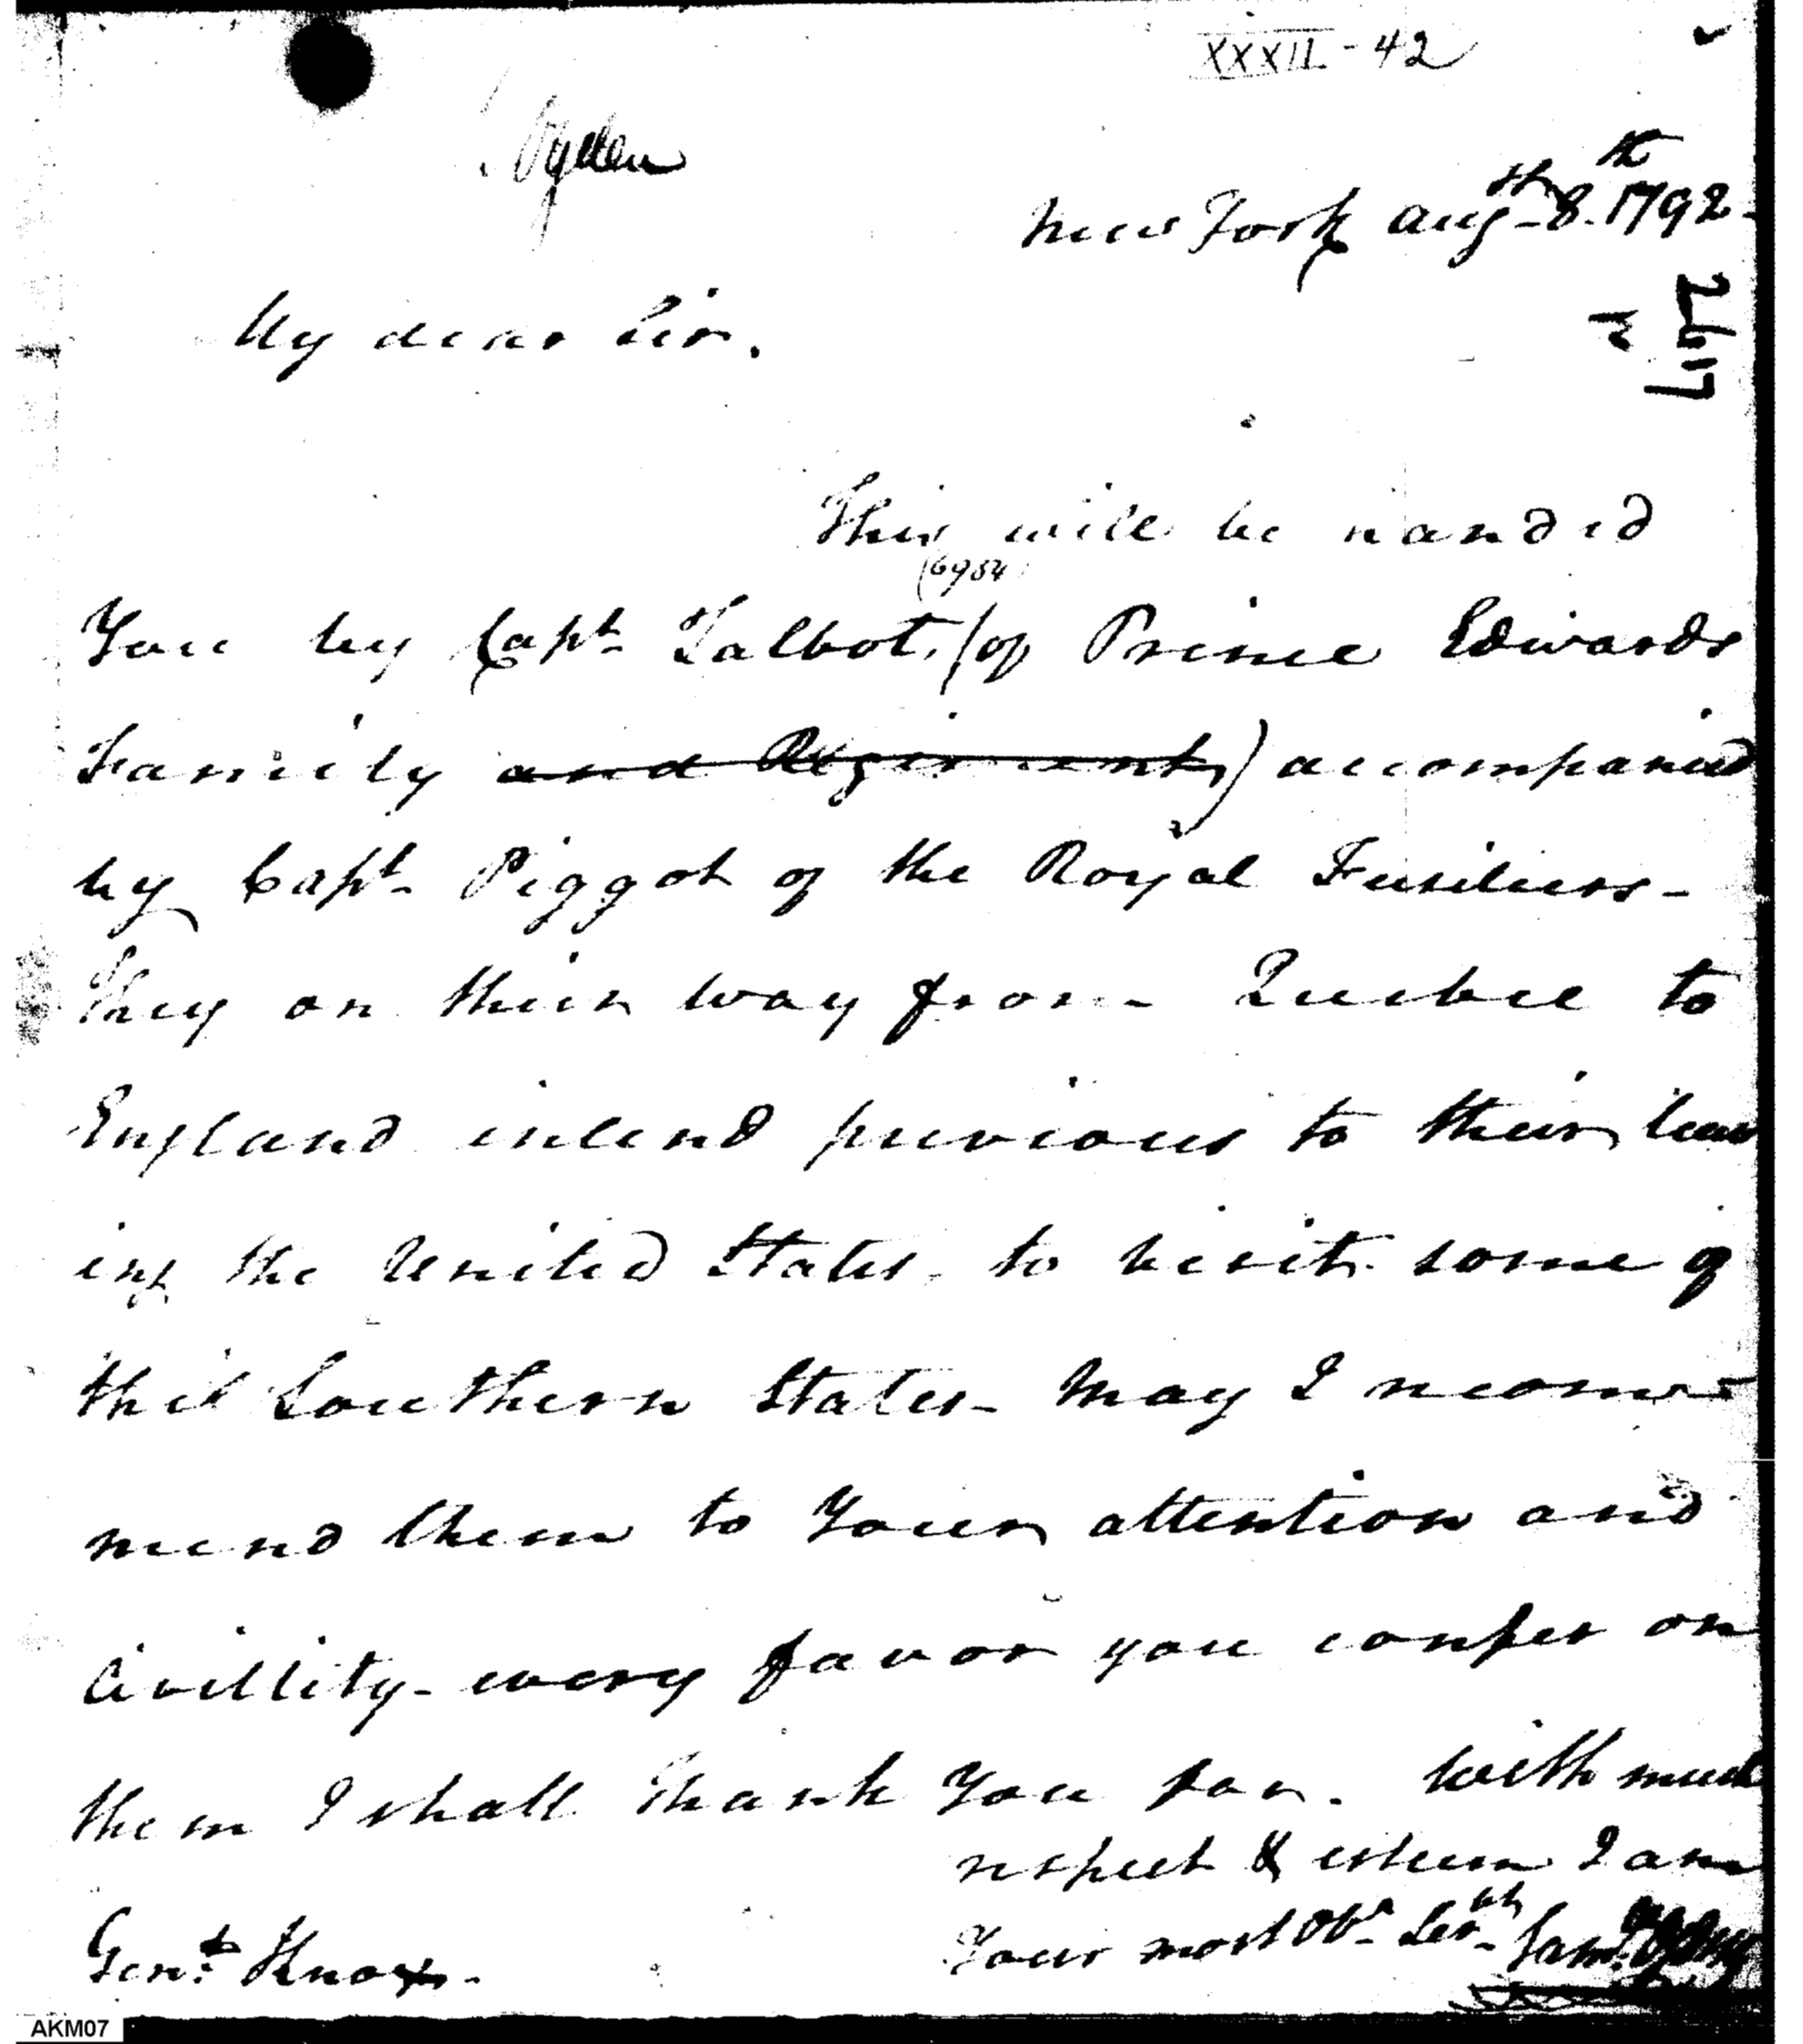 XXXII - 42
Ogden
New York Augst 8th 1792-
2617
My dear Sir.
This will be handed
(6984)
You by Capt Talbot, (of Prince Edwards
Family and Regiment) accompanied
by Capt Piggot of the Royal Fusiliers-
They on their way from Quebec to
England intend previous to their leav
ing the United States, to visit some of
the Southern States- May I recom-
mend them to Your attention and
Civillity- every favor you confer on
them I shall thank You for. With much
respect & esteem I am
Your most Obt Servt Saml Ogden
Genl Knox-
AKM07